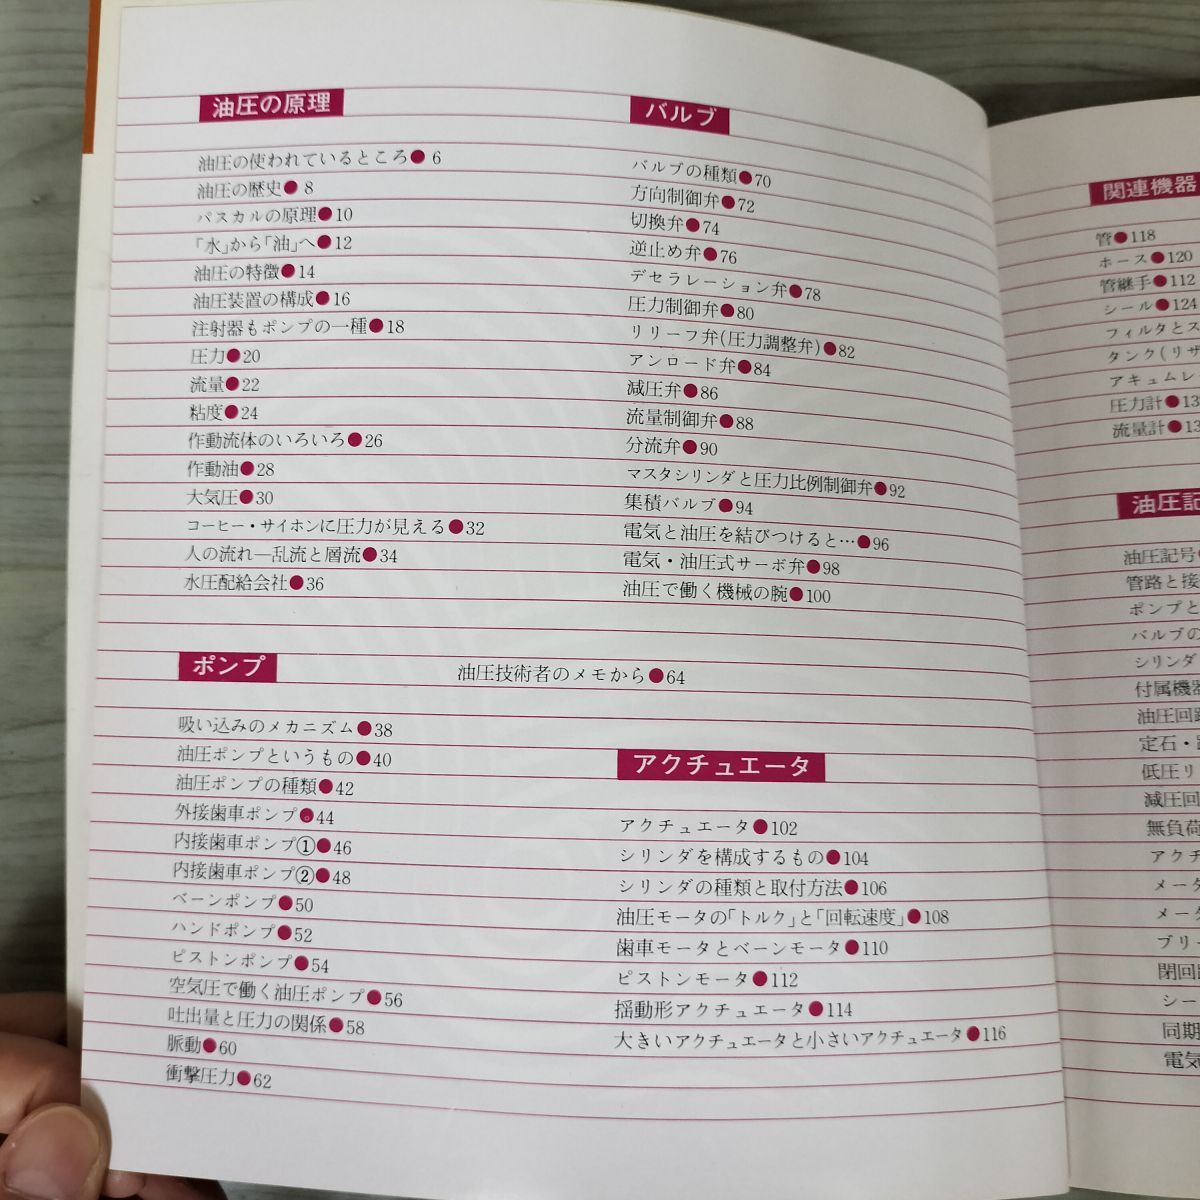 油圧の原理
油圧の使われているところ●6
油圧の歴史●8
パスカルの原理●10
「水」から「油」へ●12
油圧の特徴●14
油圧装置の構成●16
注射器もポンプの一種●18
圧力●20
流量●22
粘度●24
作動流体のいろいろ●26
作動油●28
大気圧●30
コーヒー・サイホンに圧力が見える●32
人の流れ—乱流と層流●34
水圧配給会社●36
ポンプ
吸い込みのメカニズム●38
油圧ポンプというもの●40
油圧ポンプの種類●42
外接歯車ポンプ●44
内接歯車ポンプ①●46
内接歯車ポンプ②●48
ベーンポンプ●50
ハンドポンプ●52
ピストンポンプ●54
空気圧で働く油圧ポンプ●56
吐出量と圧力の関係●58
脈動●60
衝撃圧力●62
油圧技術者のメモから●64
バルブ
バルブの種類●70
方向制御弁●72
切換弁●74
逆止め弁●76
デセラレーション弁●78
圧力制御弁●80
リリーフ弁(圧力調整弁)●82
アンロード弁●84
減圧弁●86
流量制御弁●88
分流弁●90
マスタシリンダと圧力比例制御弁●92
集積バルブ●94
電気と油圧を結びつけると…●96
電気・油圧式サーボ弁●98
油圧で働く機械の腕●100
アクチュエータ
アクチュエータ●102
シリンダを構成するもの●104
シリンダの種類と取付方法●106
油圧モータの「トルク」と「回転速度」●108
歯車モータとベーンモータ●110
ピストンモータ●112
揺動形アクチュエータ●114
大きいアクチュエータと小さいアクチュエータ●116
関連機器
管●118
ホース●120
管継手●112
シール●124
フィルタとス
タンク(リザ
アキュムレ
圧力計●13
流量計●13
油圧記
油圧記号
管路と接
ポンプと
バルブの
シリンダ
付属機器
油圧回路
定石・
低圧リ
減圧回
無負荷
アクチ
メータ
メータ
ブリー
閉回路
シー
同期
電気